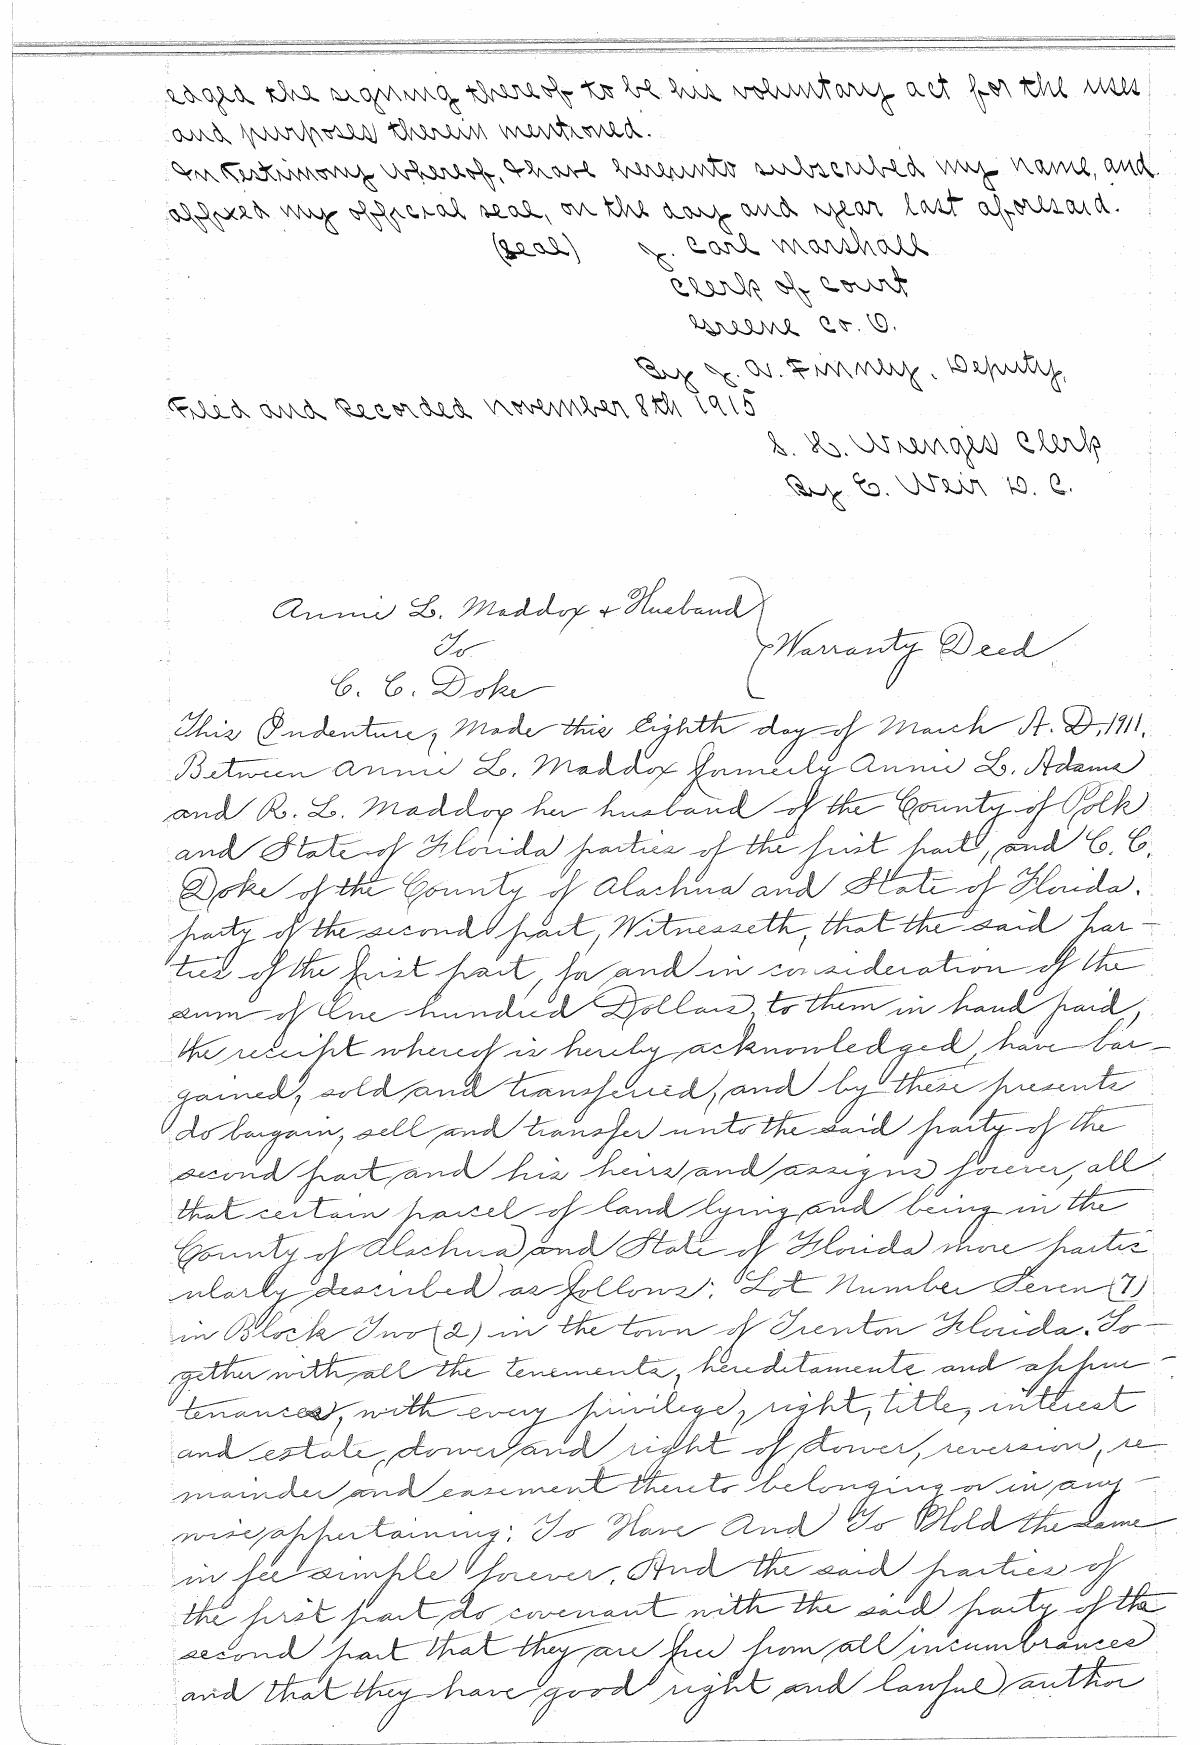 edged the signing thereof to be his voluntary act for the uses
and purposes therein mentioned.
In Testimony whereof, I have hereunto subscribed my name, and
affixed my official seal, on the day and year last aforesaid.
(Seal) J. Carl Marshall
Clerk of Court
Greene Co. O.
By J. A. Finney, Deputy,
Filed and Recorded November 8th 1915
S. H. Wienges Clerk
By E. Weir D. C.
Annie L. Maddox + Husband
To
Warranty Deed
C. C. Doke
This Indenture, Made this Eighth day of March A. D. 1911.
Between Annie L. Maddox formerly Annie L. Adams
and R. L. Maddox her husband of the County of Polk
and State of Florida parties of the first part, and C. C.
Doke of the County of Alachua and State of Florida.
party of the second part, Witnesseth, that the said par-
ties of the first part, for and in consideration of the
sum of One hundred Dollars, to them in hand paid,
the receipt whereof is hereby acknowledged, have bar-
gained, sold and transferred, and by these presents
do bargain, sell and transfer unto the said party of the
second part and his heirs and assigns forever, all
that certain parcel of land lying and being in the
County of Alachua and State of Florida more partic
ularly described as follows: Lot Number Seven (7)
in Block Two (2) in the town of Trenton Florida. To-
gether with all the tenements, hereditaments and appur-
tenances, with every privilege, right, title, interest
and estate, dower and right of dower, reversion, re
mainder and easement thereto belonging or in any-
wise appertaining: To Have And To Hold the same
in fee simple forever. And the said parties of
the first part do covenant with the said party of the
second part that they are free from all incumbrances
and that they have good right and lawful author